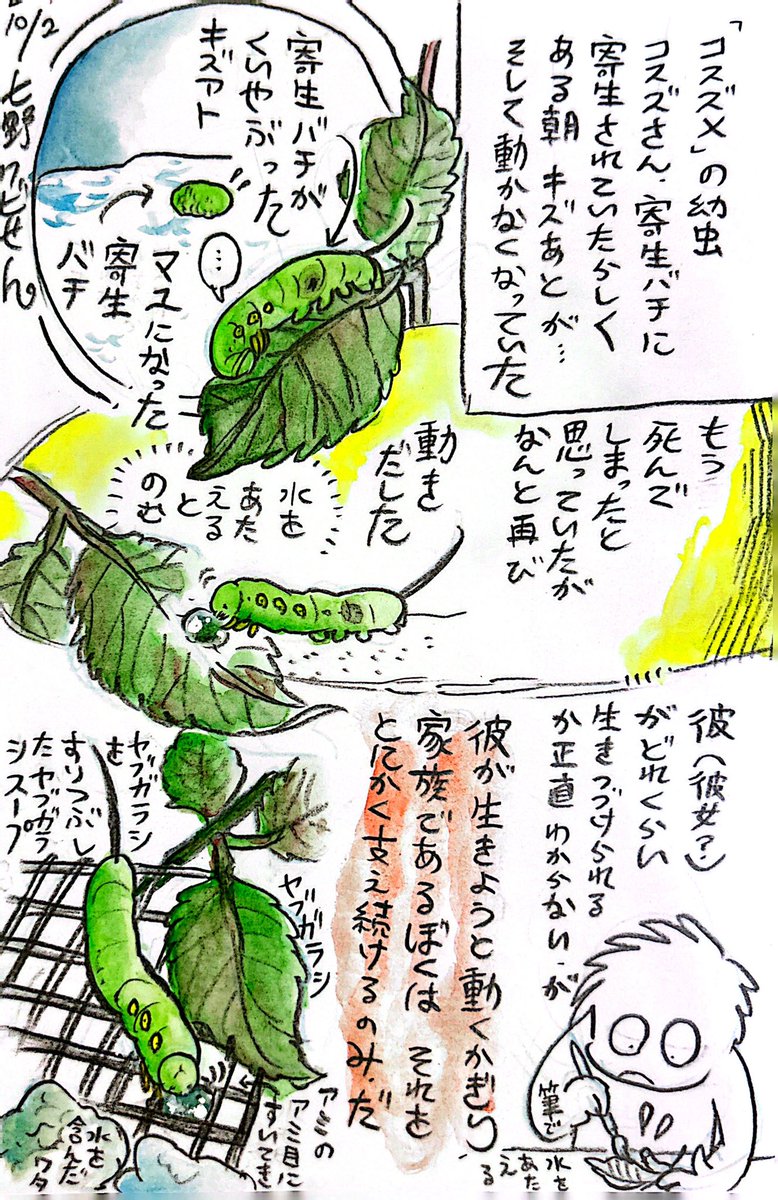 「コスズメ」の幼虫
コスズさん、寄生バチに
寄生されていたらしく
ある朝 キズあとが…
そして動かなくなっていた
寄生バチが
くいやぶった
キズアト
…
マユになった
寄生
バチ
10/2
七野ワビせん
もう
死んで
しまったと
思っていたが
なんと再び
動き
だした
水を
あた
える
と
のむ
彼(彼女?)
がどれくらい
生きつづけられる
か正直わからない、が
筆で
水を
あた
える
彼が生きようと動くかぎり
家族であるぼくは それを
とにかく支え続けるのみだ
ヤブガラシ
ヤブガラシ
を
すりつぶし
たヤブガラ
シスープ
アミの
アミ目に
すいてき
水を
含んだ
ワタ